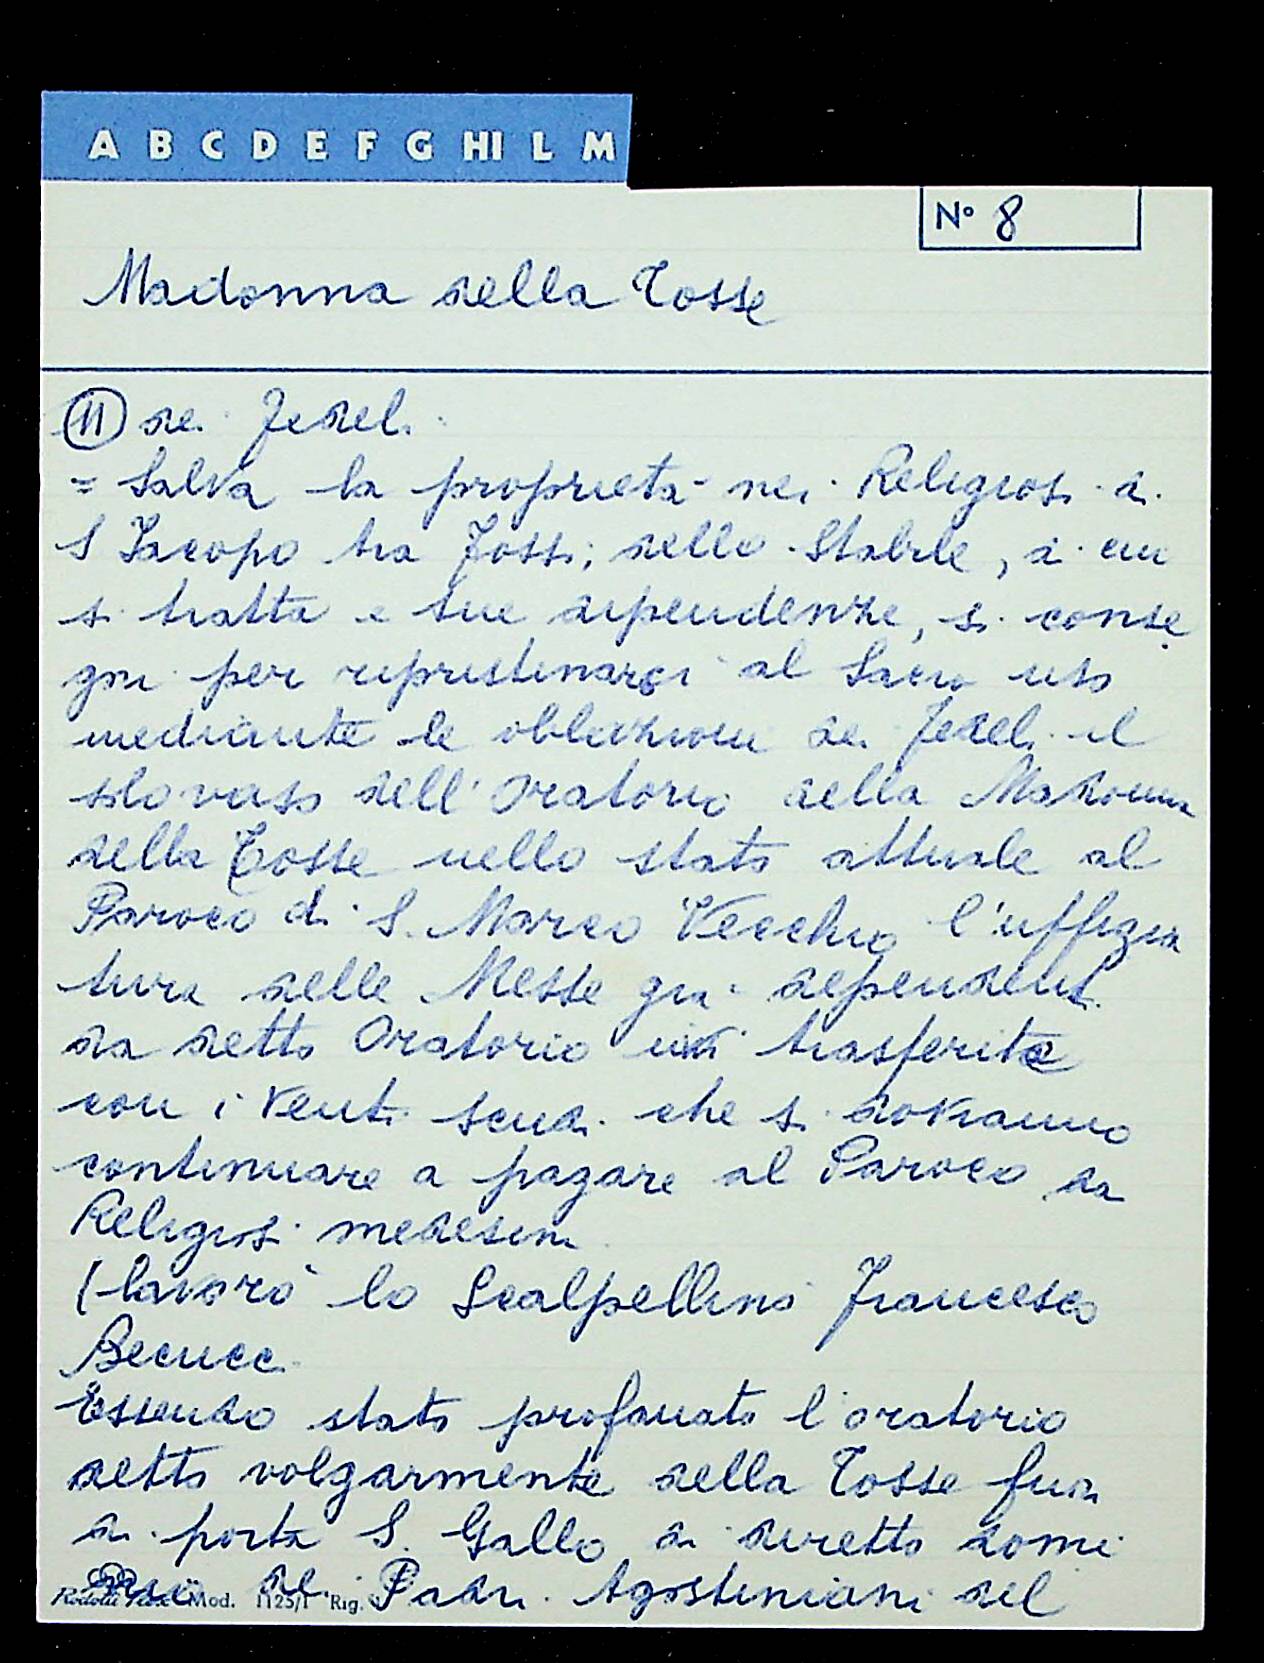 A B C D E F G HI L M
N° 8
Madonna della Tosse
11 de. Fedel.
= Salva la proprietà nei Religiosi di
S Jacopo tra Fossi; dello Stabile, di cui
si tratta e sue dipendenze, si conse
gni per ripristinarsi al Sacro uso
mediante le oblazioni de. Fedeli il
solo vaso dell'Oratorio della Madonna
della Tosse nello stato attuale al
Paroco di S. Marco Vecchio l'uffizia
tura delle Messe già dependenti
da detto Oratorio ivi trasferite
con i venti scudi che si dovranno
continuare a pagare al Paroco da
Religiosi medesimi
(lavorò lo Scalpellino Francesco
Becucci
Essendo stato profanato l'oratorio
detto volgarmente della Tosse fuori
di porta S. Gallo di diretto domi
nio de. Padri Agostiniani del
Mod. 1125/1 Rig.